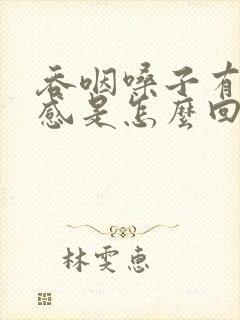 吞咽嗓子有
感是怎麼回
林雯惠